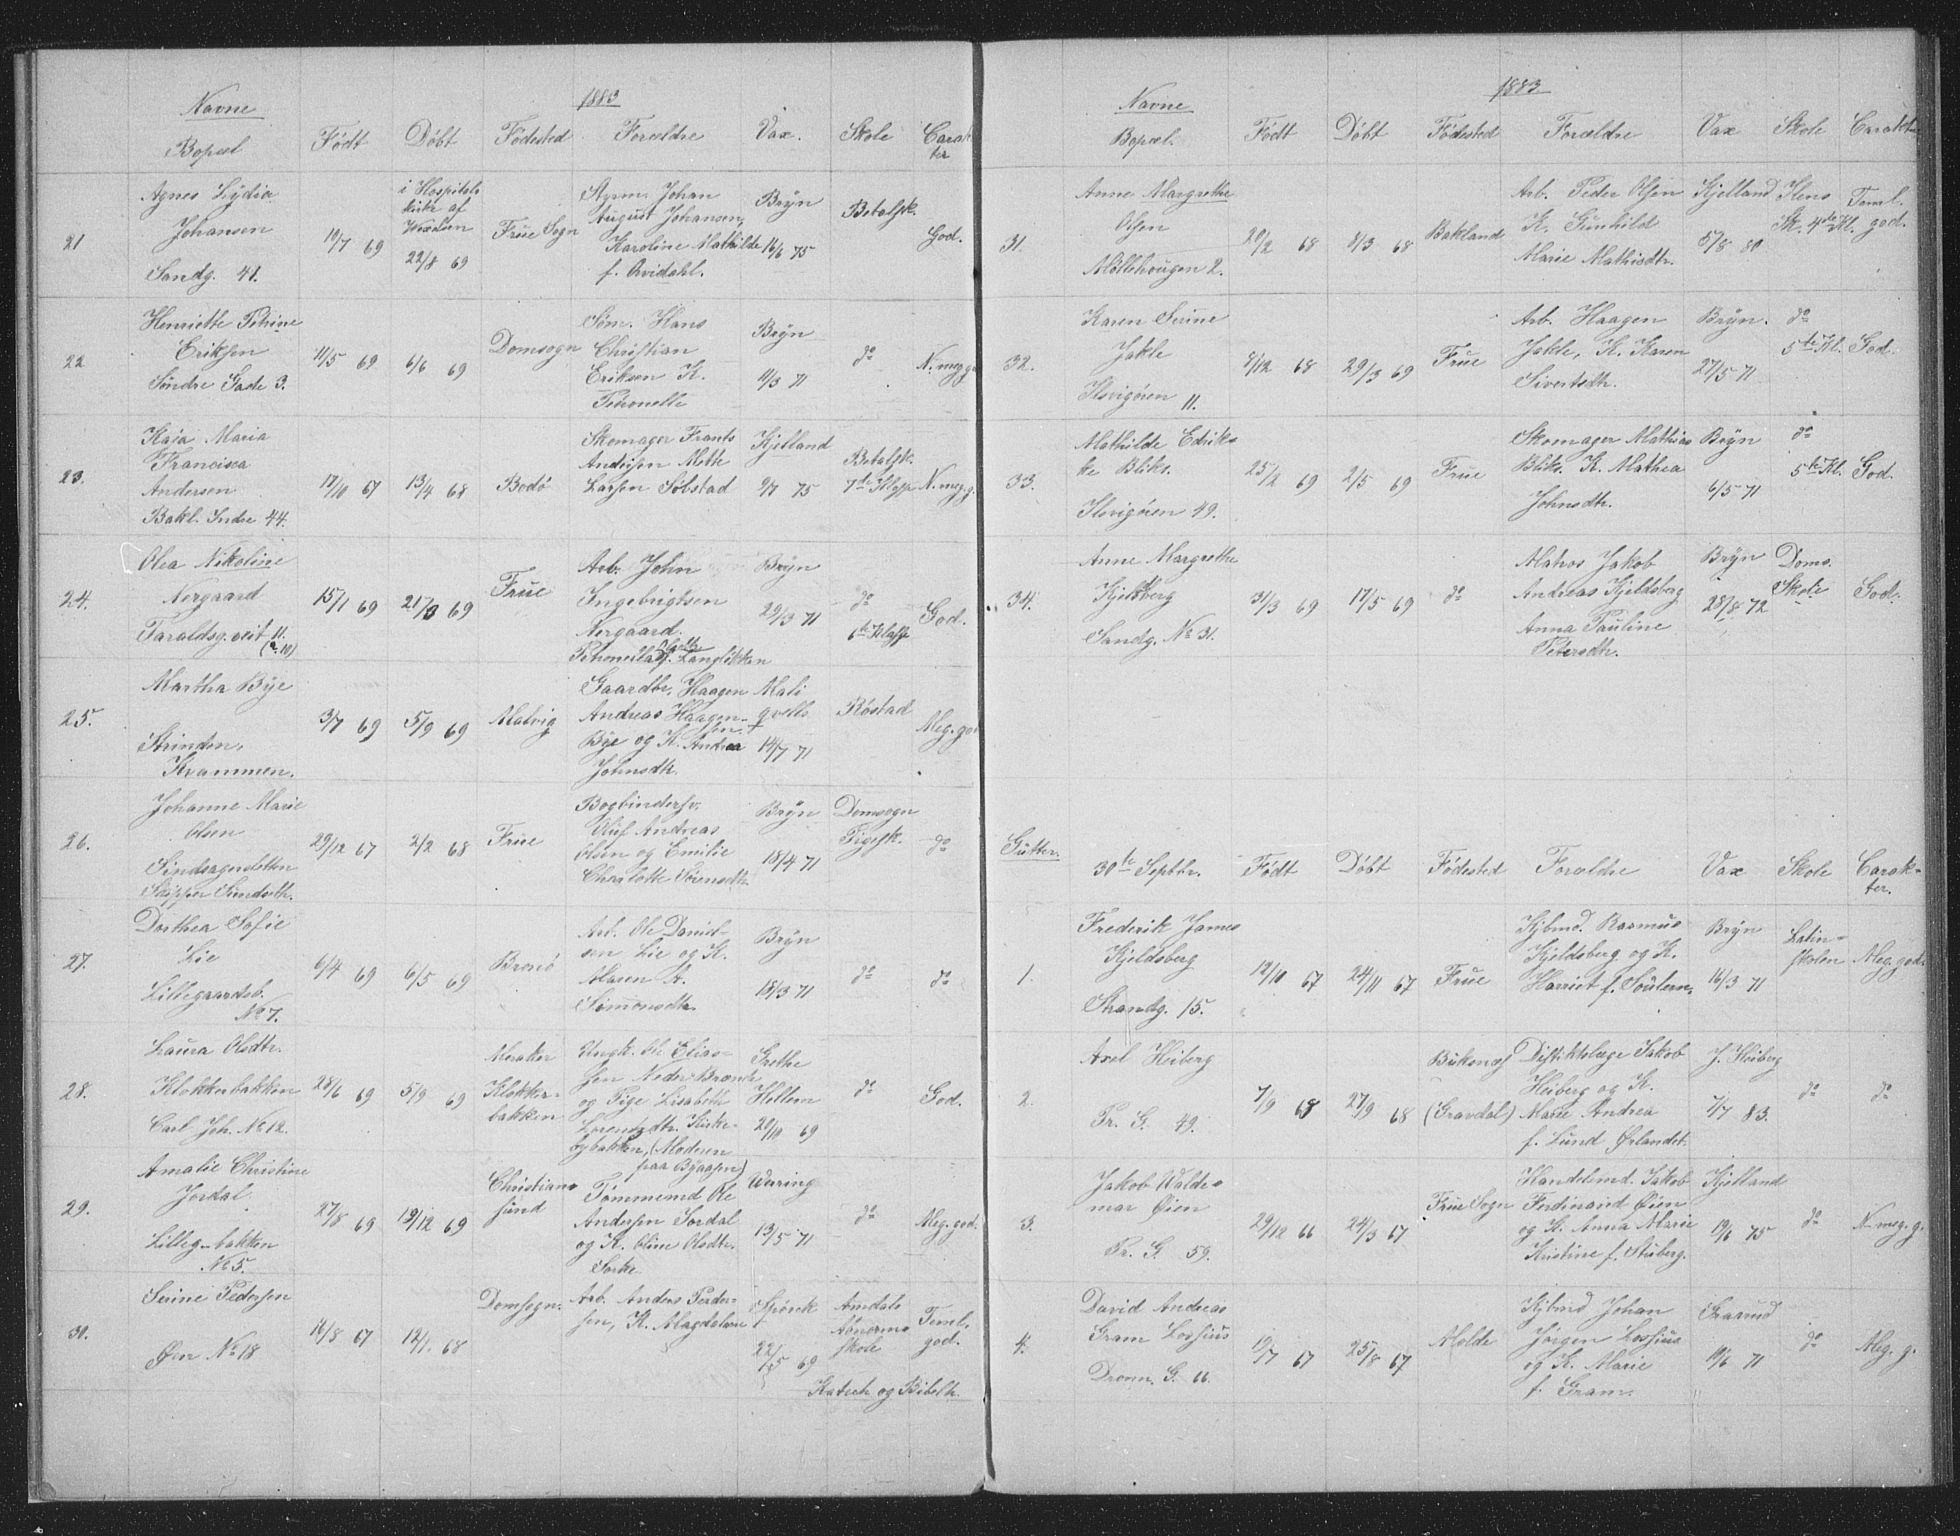 1883
Navne
Bopæl
Født
Døbt
Fødested
Forældre
Vax.
Skole
Carak-
ter
21
Agnes Lydia
Johansen
Sandg. 41.
19/7 69
i Hospitals
kirke af
22/8 69
Frue Sogn
Styrm. Johan
August Johansen,
Karoline Mathilde
f. Arvidahl.
Bryn
16/6 75
Betalsk.
God.
22
Henriette Petrine
Eriksen
Søndre Gade 3.
11/5 69
6/6 69
Domsogn
Søm. Hans
Christian
Eriksen K.
Petronelle
Bryn
11/3 71
do
N. meg g.
23.
Kaja Maria
Francisca
Andersen
Bakl. Indre 44.
17/10 67
13/4 68
Bodø
Skomager Frants
Andersen Mette
Larsen Solstad
Kjelland
9/7 75
Betalsk.
7de Klasse
N. meg g.
24.
Olea Nikoline
Nergaard
Taraldsg. veit 11.
(a. 10)
15/1 69
21/3 69
Frue
Arb. John
Ingebrigtsen
Nergaard.
Petronella Langlikken
Bryn
29/3 71
do
6te Klasse
God.
25.
Martha Bye
Strinden,
Krammen.
3/7 69
5/9 69
Malvig
Gaardbr. Haagen
Andreas Haagen-
sen
Bye og K. Andrea
Johnsdtr.
Mali
qvells
14/7 71
Rostad
Meg. god
26.
Johanne Marie
Olsen
Sindsagensletten
Skipper Sundseth.
29/12 67
2/2 68
Frue
Bogbindersv.
Oluf Andreas
Olsen og Emilie
Charlotte Sørensdtr.
Bryn
18/4 71
Domsogn
Pigesk.
do
27.
Dorthea Sofie
Lie
Lillegaardsb.
No 7.
6/4 69
6/5 69
Bronø
Arb. Ole David-
sen Lie og K.
Maren A.
Simonsdtr.
Bryn
18/3 71
do
do
28.
Laura Olsdtr.
Klokkerbakken
Carl Joh. No 12.
28/6 69
5/9 69
Meraker
Klokker-
bakken
Ungk. Ole Elias-
sen Neder-Brænne
og Pige Lisabeth
Lorentsdtr. Kirke-
bybakken, (Moderen
paa Byaasen)
Grethe
Hellem
20/10 69
do
God.
29.
Amalie Christine
Jordal
Lilleg-bakken
No 5.
27/8 69
19/12 69
Christian-
sund
Tømmermd Ole
Andersen Jordal
og K. Oline Olsdtr.
Waring
13/5 71
do
Meg. god.
30.
Serine Pedersen
Øen No 18
16/8 67
12/1 68
Domsogn.
Arb. Anders Peder-
sen, K. Magdalene
Spørck
22/5 69
Amdals
Abnorme
skole
Teml.
god.
Katech og Bibelh.
1883
Navne
Bopæl.
Født
Døbt
Fødested
Forældre
Vax
Skole
Carakter
31.
Anne Margrethe
Olsen
Møllehougen 2.
20/2 68
8/3 68
Bakland
Arb. Peder Olsen
K. Gunhild
Marie Mathisdtr.
Kjelland
5/8 80
Ilens
Sk. 4de Kl.
Teml.
god.
32.
Karen Serine
Jakle
Ilsvigøren 11.
8/12 68
29/3 69
Frue
Arb. Haagen
Jakle, K. Karen
Sivertsdtr.
Bryn.
27/5 71
do
5te Kl.
God.
33.
Mathilde Edrik-
ke Bliks.
Ilsvigøren 49.
25/2 69
2/5 69
Frue
Skomager Mathias
Bliks. K. Mathea
Johnsdtr.
Bryn
6/5 71
do
5te Kl.
God.
34.
Anne Margrethe
Kjeldsberg
Sandg. No 31.
31/3 69
17/5 69
do
Matros Jakob
Andreas Kjeldsberg
Anna Pauline
Petersdtr.
Bryn
28/8 72
Doms.
Skole
God.
Gutter.
30te Septbr.
Født
Døbt
Fødested
Forældre
Vax
Skole
Carak-
ter.
1.
Frederik James
Kjeldsberg
Strandg. 15.
12/10 67
24/11 67
Frue
Kjbmd. Rasmus
Kjeldsberg og K.
Harriet f. Soutern.
Bryn
16/3 71
Latin-
skolen
Meg. god.
2.
Axel Heiberg
Pr. G. 49.
7/9 68
27/9 68
Buksnæs
(Gravdal)
Distriktslæge Jakob
Heiberg og K.
Marie Andrea
f. Lund Ørlandet
J. Heiberg
7/7 83.
do
do
3.
Jakob Walde-
mar Øien
Pr. G. 59.
29/12 66
24/3 67
Frue Sogn
Handelsmd. Jakob
Ferdinand Øien
og K. Anna Marie
Kristine f. Stuberg.
Kjelland
19/6 75
do
N. meg. g.
4.
David Andreas
Gram Lossius
Dronn. G. 66.
19/7 67
25/8 67
Molde
Kjbmd Johan
Jørgen Lossius
og K. Marie
f. Gram.
19/6 71
do
Meg. g.